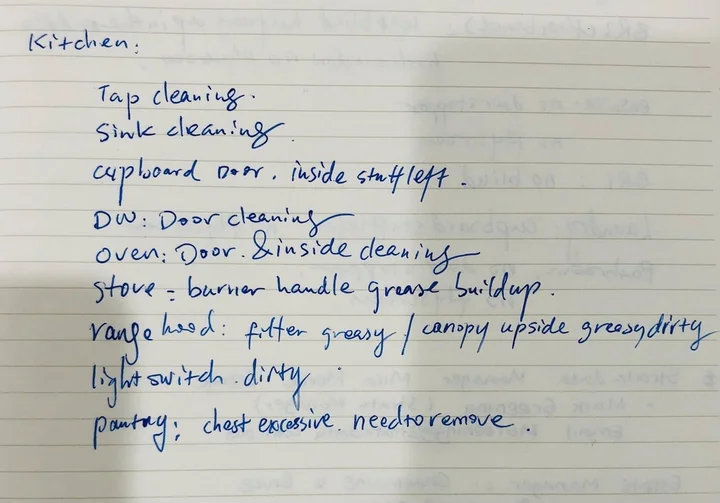 Kitchen:
Tap cleaning.
Sink cleaning
cupboard Door. inside stuff left.
DW: Door cleaning
oven: Door. & inside cleaning
stove = burner handle grease buildup.
range hood: filter greasy / canopy upside greasy dirty
light switch. dirty
pantry: chest excessive. need to remove.